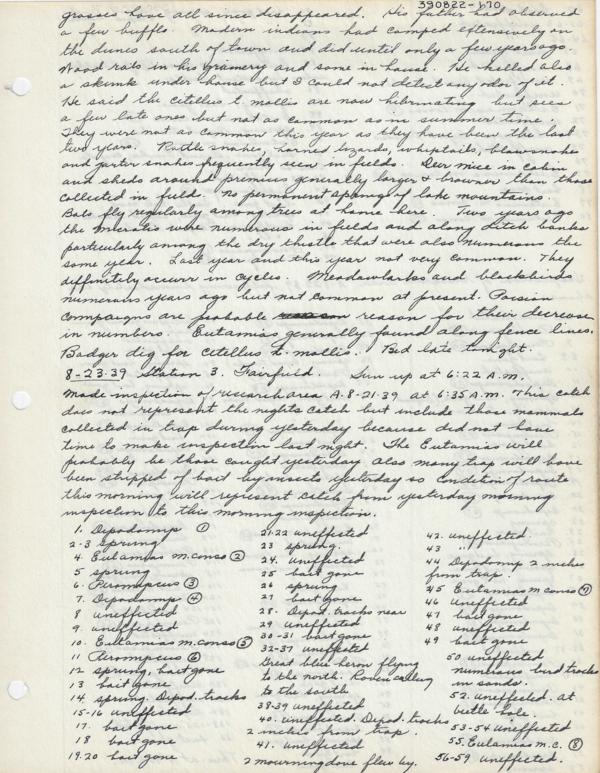 390822-170
grasses have all since disappeared. His father had observed
a few bufflo. Modern indians had camped eftensively on
the dunes south of town and did until only a few years ago.
Wood rats in his grainery and some in house. He killed also
a skunk under house but I could not detect any odor of it.
He said the citellus t. mollis are now hibrinating but sees
a few late ones but not as common as in summer time.
They were not as common this year as they have been the last
two years. Rattle snakes, horned lizards, whiptails, blowsnakes
and garter snakes frequently seen in fields. Deer mice in cabin
and sheds around premius generally larger & browner then those
collected in field. No permanent springs of lake mountains.
Bats fly regularly among trees at home here. Two years ago
the micratis were numerous in fields and along ditch banks
particularly among the dry thistle that were also numerous the
same year. Last year and this year not very common. They
diffinitely occurr in cycles. Meadowlarks and blackbirds
numerius years ago but not common at present. Poision
compaigns are probable reason for their decrease
in numbers. Eutamias generally found along fence lines.
Badger dig for citellus t. mollis. Bed late tonight.
8-23-39 Station 3. Fairfield. Sun up at 6:22 A.M.
Made inspection of research area A.8-21-39 at 6:35 A.M. This catch
does not represent the nights catch but include those mammals
collected in trap during yesterday because did not have
time to make inspection last night. The Eutamias will
probably be those caught yesterday also many trap will have
been stripped of bait by insects yesterday so condition of route
this morning will represent catch from yesterday morning
inspection to this morning inspection.
1. Dipodomys ①
2-3 sprung
4 Eutamias m. conso ②
5 sprung
6. Peromyscus ③
7. Dipodomys ④
8 uneffected
9 uneffected
10. Eutamias m. conso ⑤
11 Peromyscus ⑥
12 sprung, bait gone
13 bait gone
14 sprung. Dipod. tracks
15-16 uneffected
17 bait gone
18 bait gone
19-20 bait gone
21-22 uneffected
23 sprung.
24. uneffected
25 bait gone
26 sprung
27 bait gone
28. Dipod. tracks near
29 uneffected
30-31 bait gone
32-37 uneffected
Great blue heron flying
to the north. Raven calling
to the south
38-39 uneffected
40. uneffected. Dipod. tracks
2 inches from trap.
41. uneffected
2 mourning dove flew by.
42. uneffected.
43 "
44 Dipodomys 2 inches
from trap.
45 Eutamias m conso ⑦
46 Uneffected
47 bait gone
48 uneffected
49 bait gone
50 uneffected
numerous bird tracks
in sands.
52. uneffected. at
bettle hole.
53-54 uneffected
55. Eutamias m. c. ⑧
56-59 uneffected.